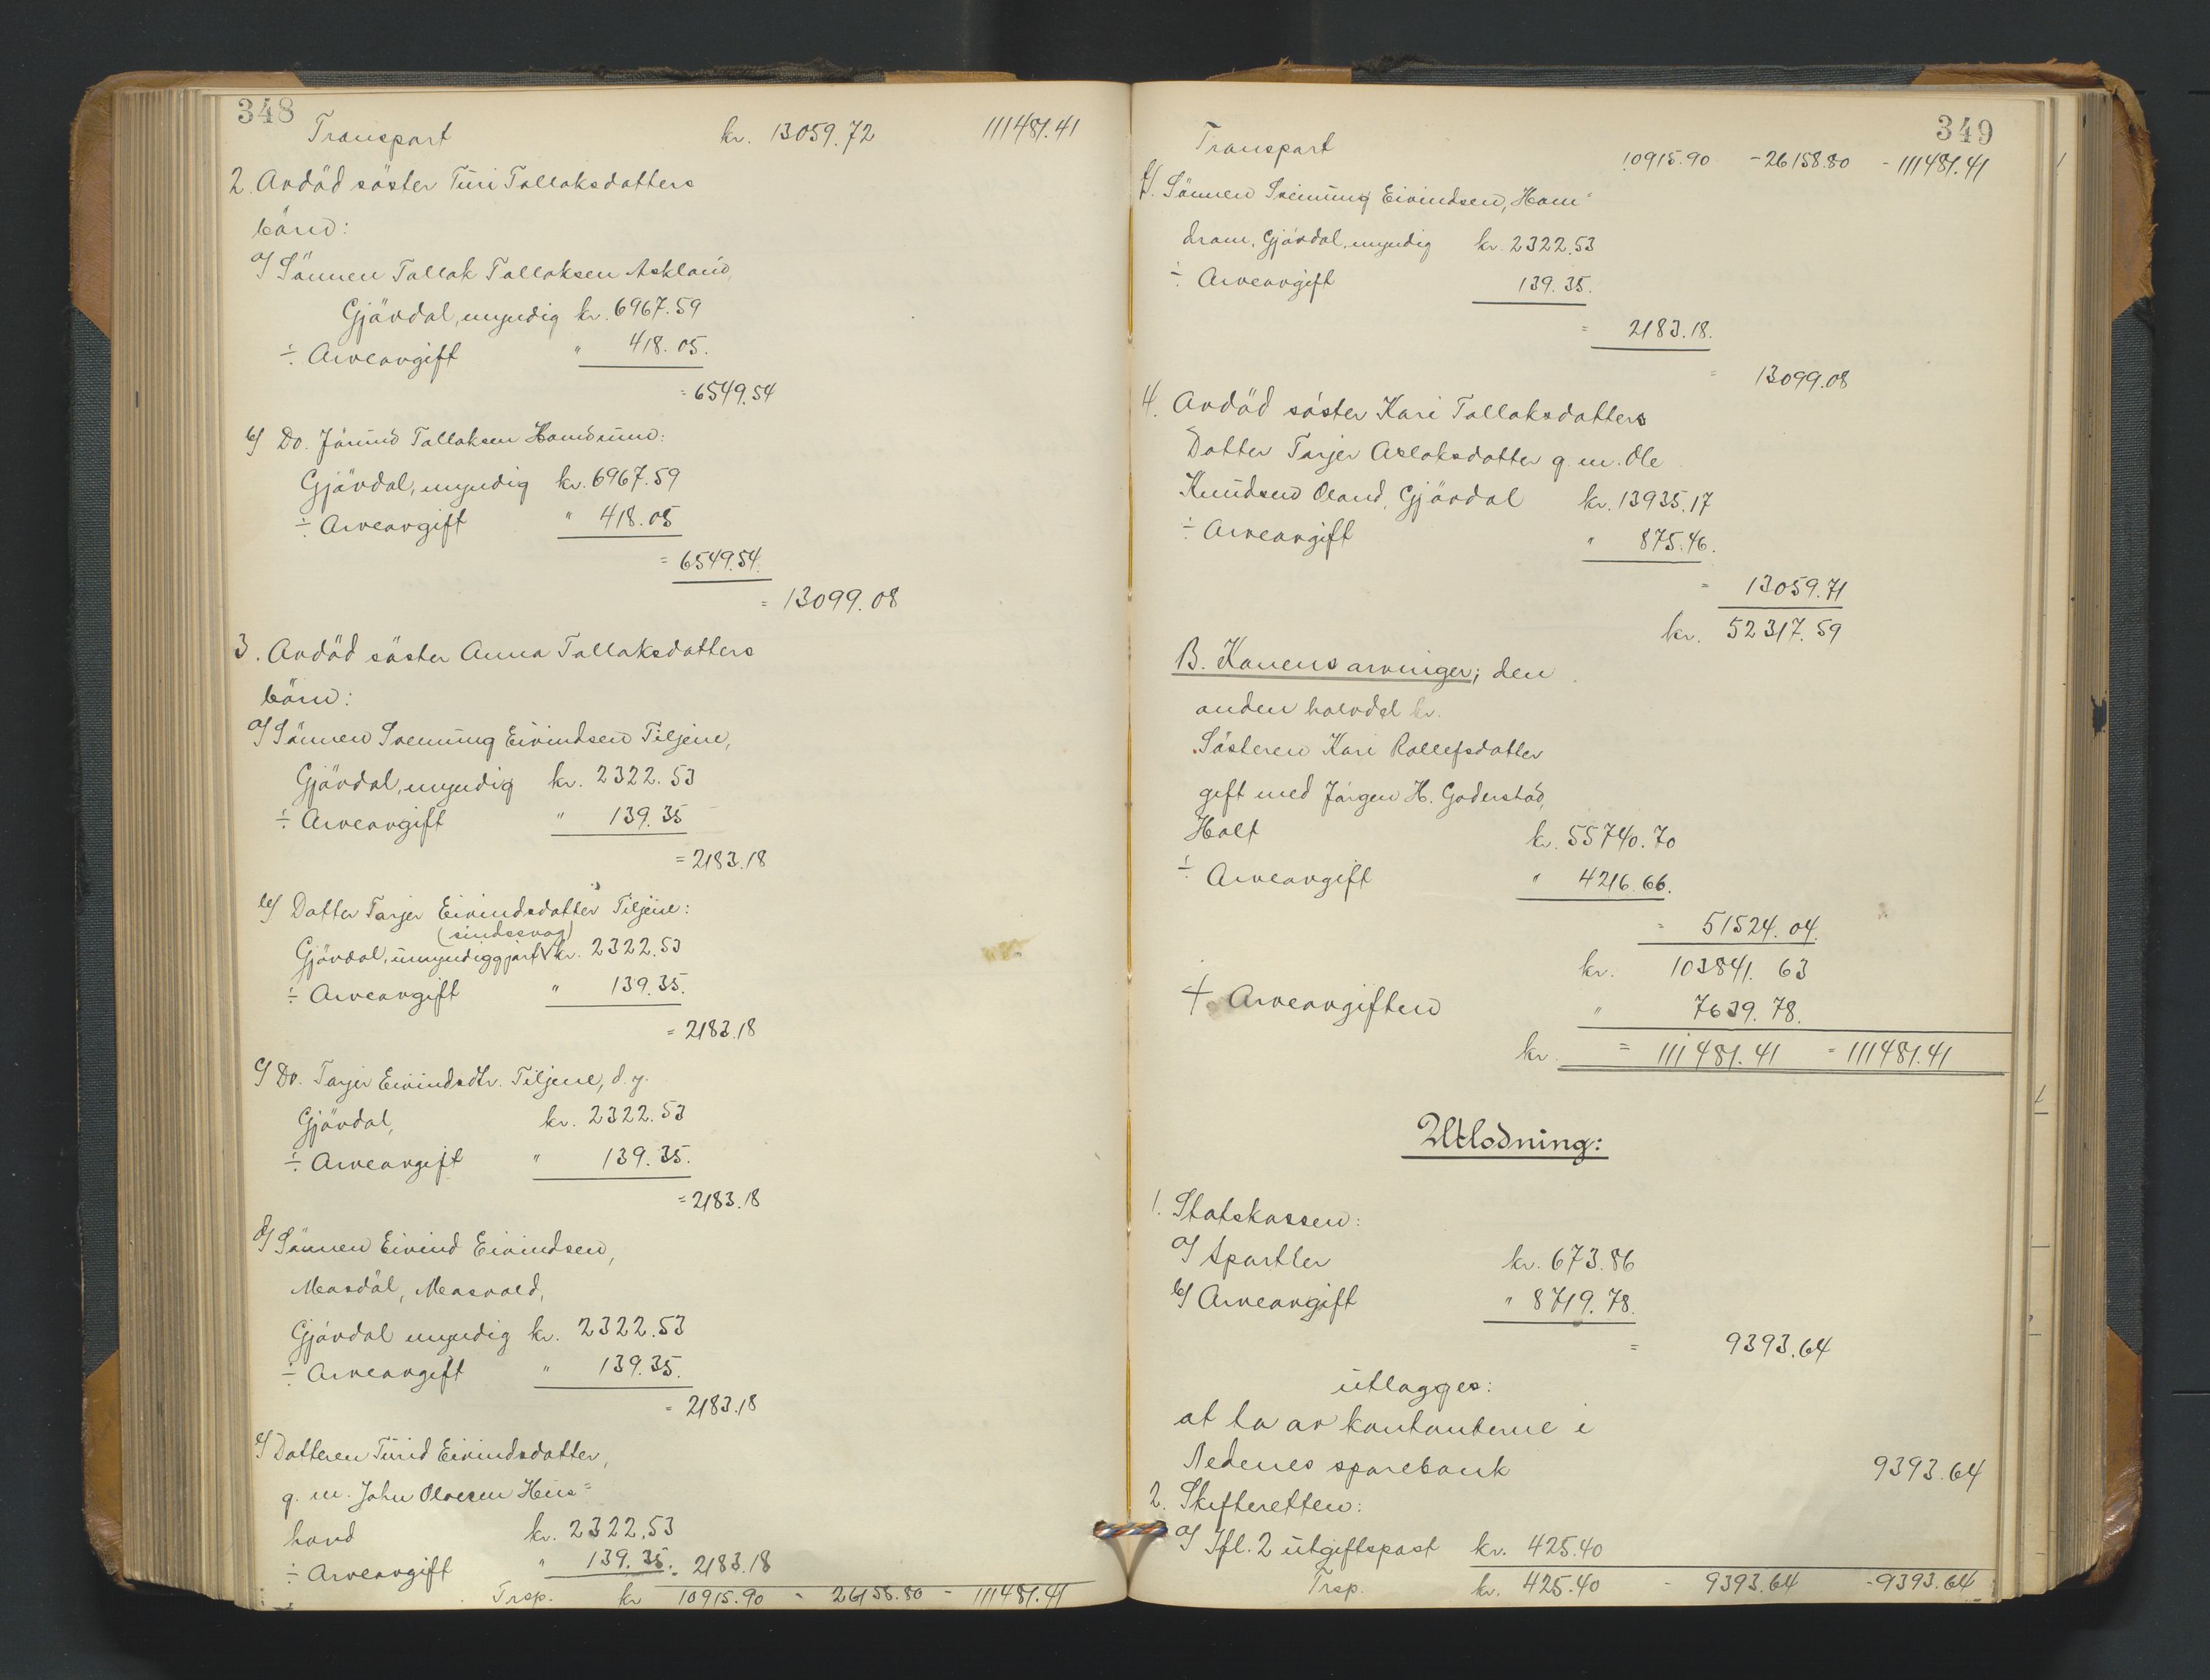 348
Transport kr. 13059.72 111481.41
2. Avdöd söster Turi Tallaksdatters
börn:
a/ Sönnen Tallak Tallaksen Askland,
Gjövdal, myndig kr. 6967.59
÷ Arveavgift " 418.05.
= 6549.54
b/ Do. Jörund Tallaksen Hamdrum:
Gjövdal, myndig kr. 6967.59
÷ Arveavgift " 418.05
= 6549.54.
= 13099.08
3. Avdöd söster Anna Tallaksdatters
börn:
a/ Sönnen Svenung Eivindsen Tiljene,
Gjövdal, myndig kr. 2322.53
÷ Arveavgift " 139.35
= 2183.18
b/ Datter Tarjer Eivindsdatter Tiljene:
(sindssvag)
Gjövdal, umyndiggjort kr. 2322.53
÷ Arveavgift " 139.35.
= 2183.18
c/ Do. Tarjer Eivindsdtr. Tiljene, d.y.
Gjövdal, kr. 2322.53
÷ Arveavgift " 139.35.
= 2183.18
d/ Sönnen Eivind Eivindsen,
Mosdöl, Mosvold,
Gjövdal myndig kr. 2322.53
÷ Arveavgift " 139.35.
= 2183.18
e/ Datteren Turid Eivindsdatter,
g. m. John Olvesen Hus=
hovd kr. 2322.53
÷ Arveavgift " 139.35. = 2183.18
Trsp. kr 10915.90 - 26158.80 - 111481.41
349
Transport 10915.90 - 26158.80 - 111481.41
f/. Sönnen Svenung Eivindsen, Ham=
dram, Gjövdal, myndig kr. 2322.53
÷ Arveavgift 139.35.
= 2183.18.
= 13099.08
4. Avdöd söster Kari Tallaksdatters
Datter Tarjer Aslaksdatter g. m. Ole
Knudsen Oland, Gjövdal kr. 13935.17
÷ Arveavgift " 875.46.
= 13059.71
kr. 52317.59
B. Konens arvinger; den
anden halvdel kr.
Søsteren Kari Rollefsdatter
gift med Jörgen H. Goderstad,
Holt kr. 55740.70
÷ Arveavgift " 4216.66.
= 51524.04.
kr. 103841.63
+ Arveavgiften " 7639.78.
kr. = 111481.41 = 111481.41
Utlodning:
1. Statskassen:
a/ Sportler kr. 673.86
b/ Arveavgift " 8719.78.
= 9393.64
utlægges:
at ta av kontanterne i
Nedenes sparebank 9393.64
2. Skifteretten:
a/ Ifl. 2 utgiftspost kr. 425.40
Trsp. kr. 425.40 - 9393.64 - 9393.64